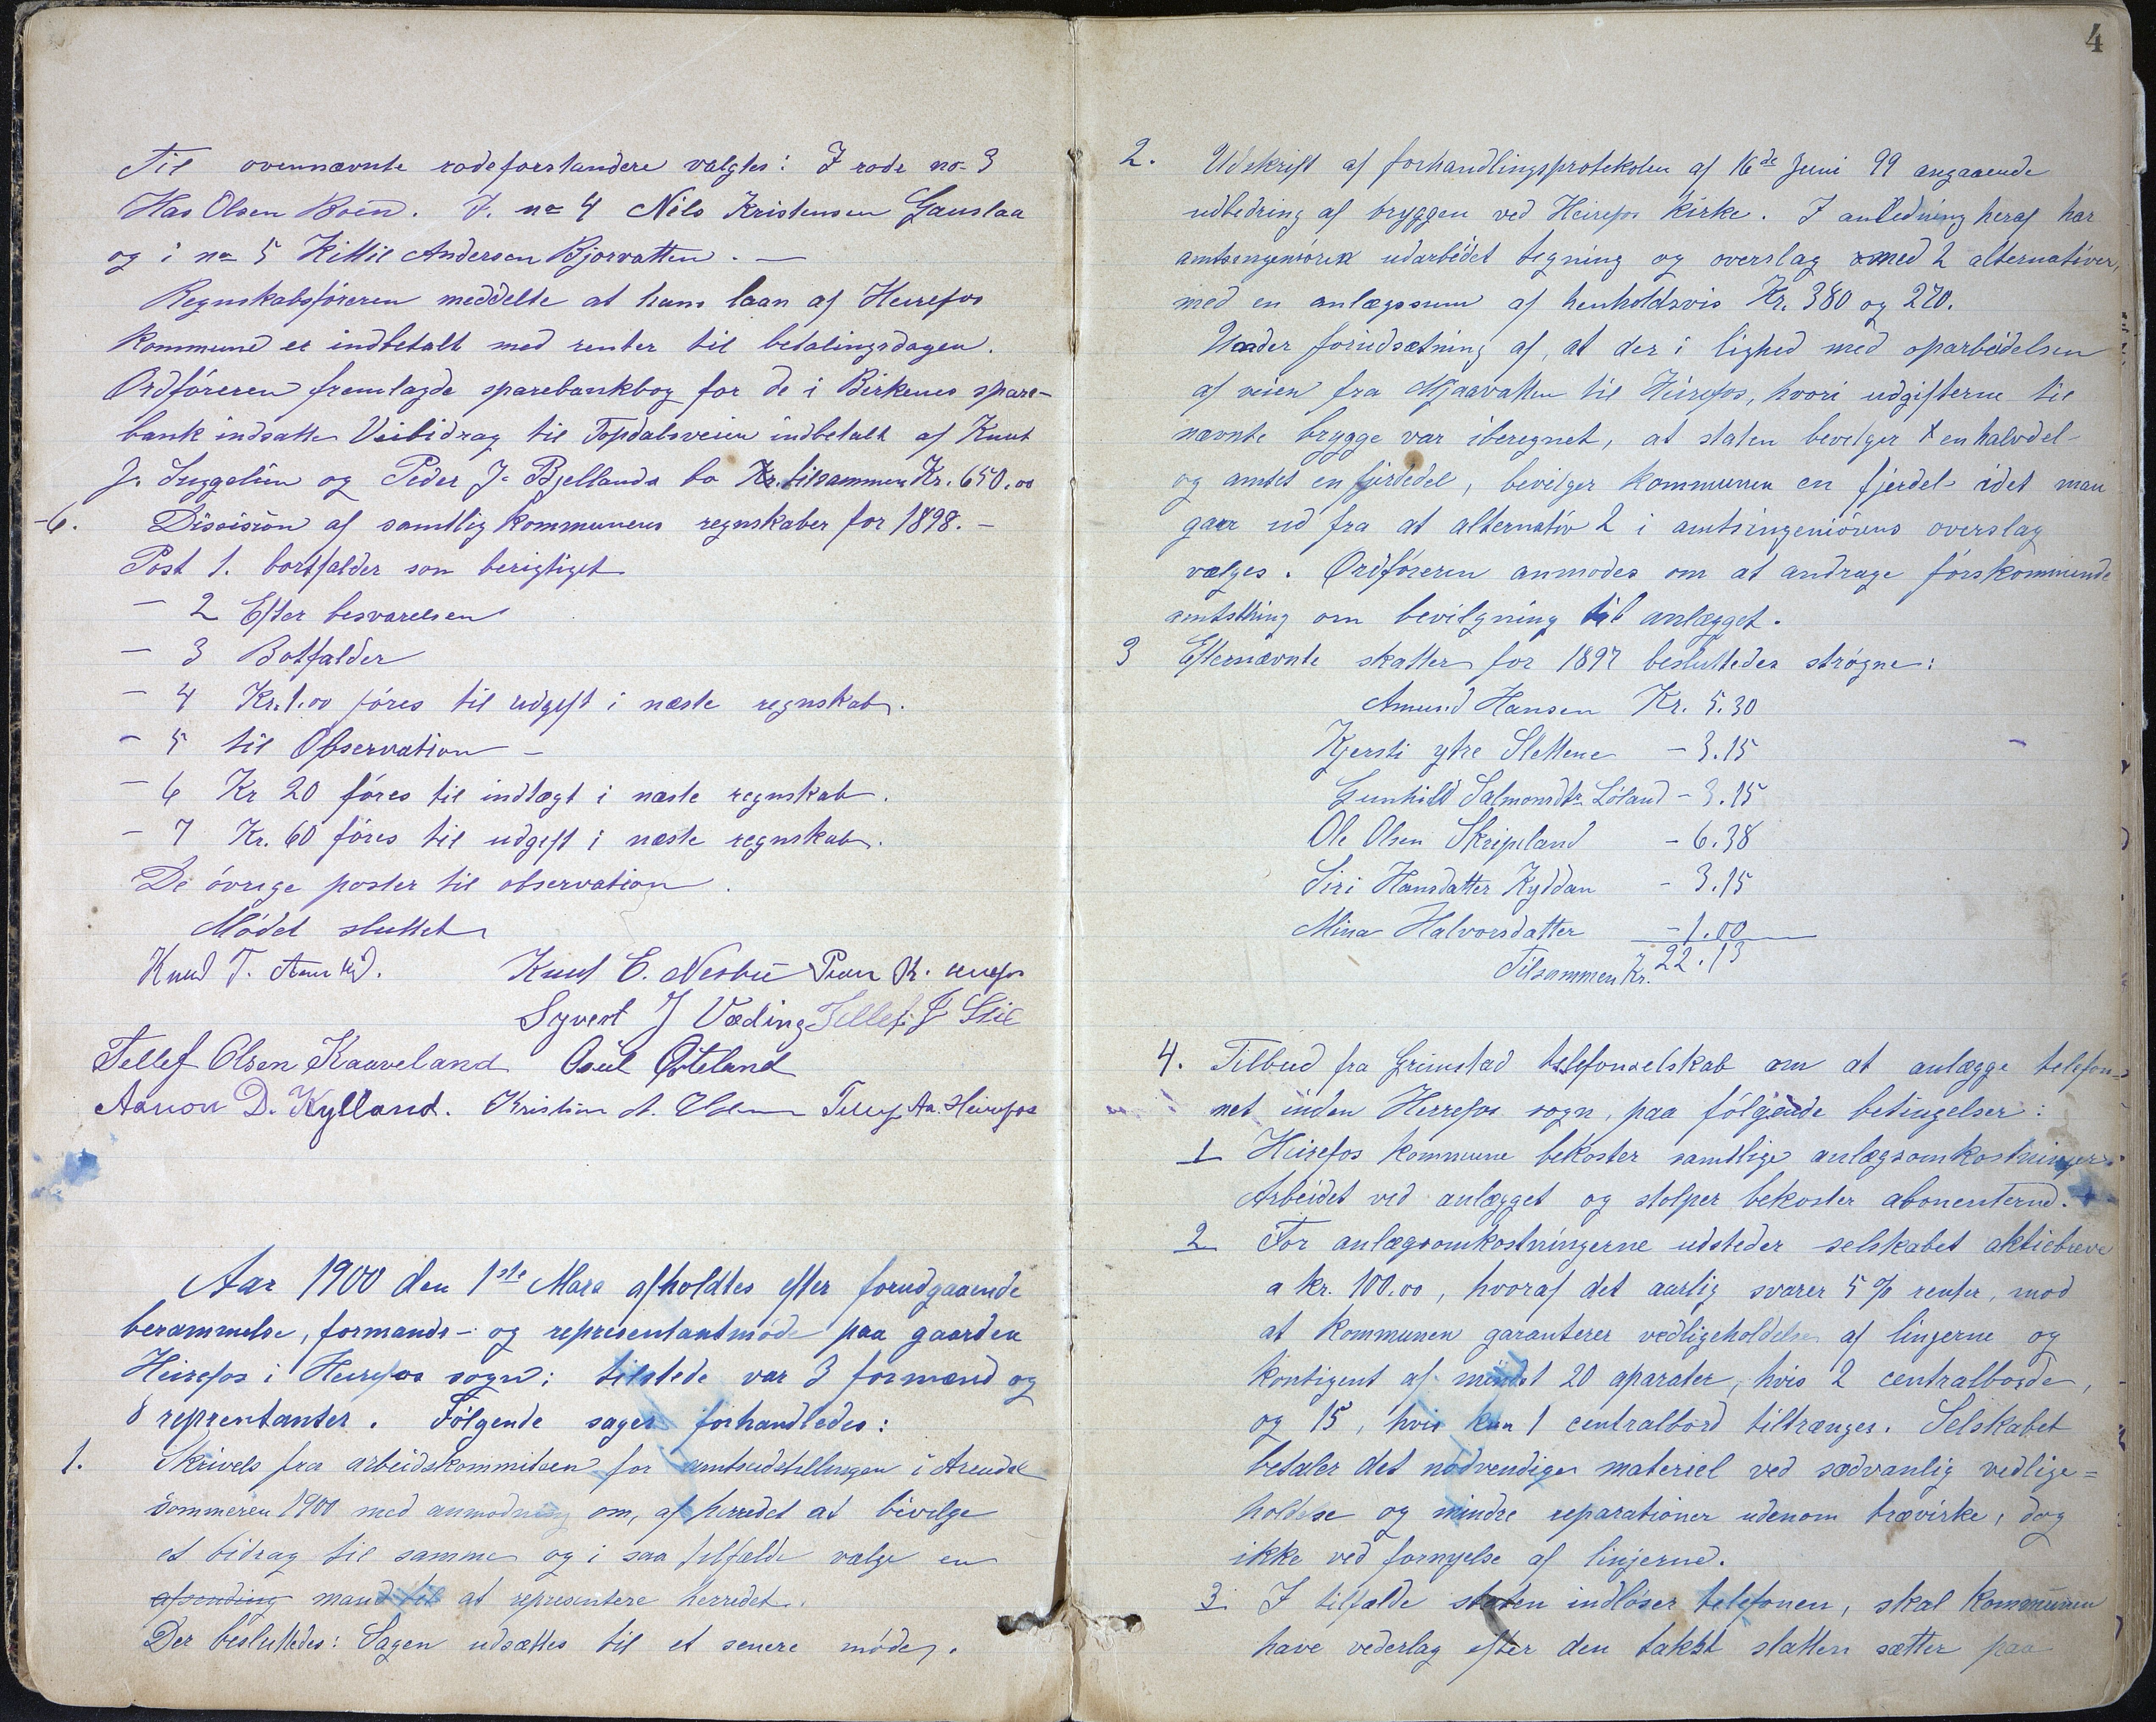 Til ovennævnte rodeforstandere valgtes: I rode no 3
Has Olsen Boen. I. no 4 Nils Kristensen Gauslaa
og i no 5 Kittil Andersen Bjorvatten. —
Regnskabsføreren meddelte at hans laan af Heirefos
kommune er indbetalt med renter til betalingsdagen.
Ordføreren fremlagde sparebankbog for de i Birkenes spare-
bank indsatte Veibidrag til Topdalsveien indbetalt af Knut
J. og Peder J. Bjellands bo Kr. tilsammen Kr. 650.00
-6. Dissision af samtlig kommunens regnskaber for 1898. —
Post 1. bortfalder som berigtiget
— 2 Efter besvarelsen
— 3 Botfalder
— 4 Kr. 1.00 føres til udgift i næste regnskab.
— 5 til Observation —
— 6 Kr 20 føres til indtægt i næste regnskab.
— 7 Kr. 60 føres til udgift i næste regnskab.
De øvrige poster til observation.
Mødet sluttet
Knud T. Knut E. Nesbø
Syvert J Væding Tellef J
Tellef Olsen Kaaveland Osul Østeland
Aanon D. Kylland. Kristian A. Tellef Aa. Heirefos
Aar 1900 den 1ste Mars afholdtes efter forudgaaende
berammelse, formands- og representantmøde paa gaarden
Heirefos i Heirefos sogn; tilstede var 3 formænd og
8 reprentanter. Følgende sager forhandledes:
1. Skrivels fra arbeidskommiteen for amtsudstillingen i Arendal
sommeren 1900 med anmodning om, af herredet at bevilge
et bidrag til samme og i saa tilfælde vælge en
afsending mand til at representere herredet.
Der besluttedes: Sagen udsættes til et senere møde.
4
2. Udskrift af forhandlingsprotokolen af 16de Juni 99 angaaende
udbedring af bryggen ved Heirefos kirke. I anledning heraf har
amtsingeniøren udarbeidet tegning og overslag med 2 alternativer,
med en anlægssum af henholdsvis Kr. 380 og 270.
Under forudsætning af, at der i lighed med oparbeidelsen
af veien fra Mjaavatten til Heirefos, hvori udgifterne til
nævnte brygge var iberegnet, at staten bevilger en halvdel
og amtet en fjerdedel, bevilger kommunen en fjerdel idet man
gaar ud fra at alternativ 2 i amtsingeniørens overslag
vælges. Ordføreren anmodes om at andrage førskommende
amtsthing om bevilgning til anlægget.
3 Efternævnte skatter for 1897 besluttedes strøgne:
Amund Hansen Kr. 5.30
Kjersti ytre Slettene — 3.15
Gunhild Salmonsdtr Løland — 3.15
Ole Olsen Skripeland — 6.38
Siri Hansdatter Kyddan — 3.15
Mina Halvorsdatter — 1.00
Tilsammen Kr. 22.13
4. Tilbud fra Grimstad telefonselskab om at anlægge telefon-
net inden Herrefos sogn, paa følgende betingelser:
1 Heirefos kommune bekoster samtlige anlægsomkostninger.
Arbeidet ved anlægget og stolper bekoster abonenterne.
2 For anlægsomkostningerne udsteder selskabet aktiebreve
a kr. 100.00, hvoraf det aarlig svarer 5 % renter, mod
at kommunen garanterer vedligeholdelse af linjerne og
kontigent af mindst 20 aparater, hvis 2 centralborde,
og 15, hvis kun 1 centralbord tiltrænges. Selskabet
betaler det nødvendige materiel ved sædvanlig vedlige=
holdelse og mindre reparationer udenom trævirke, dog
ikke ved fornyelse af linjerne.
3. I tilfælde staten indløser telefonen, skal kommunen
have vederlag efter den takst statten sætter paa